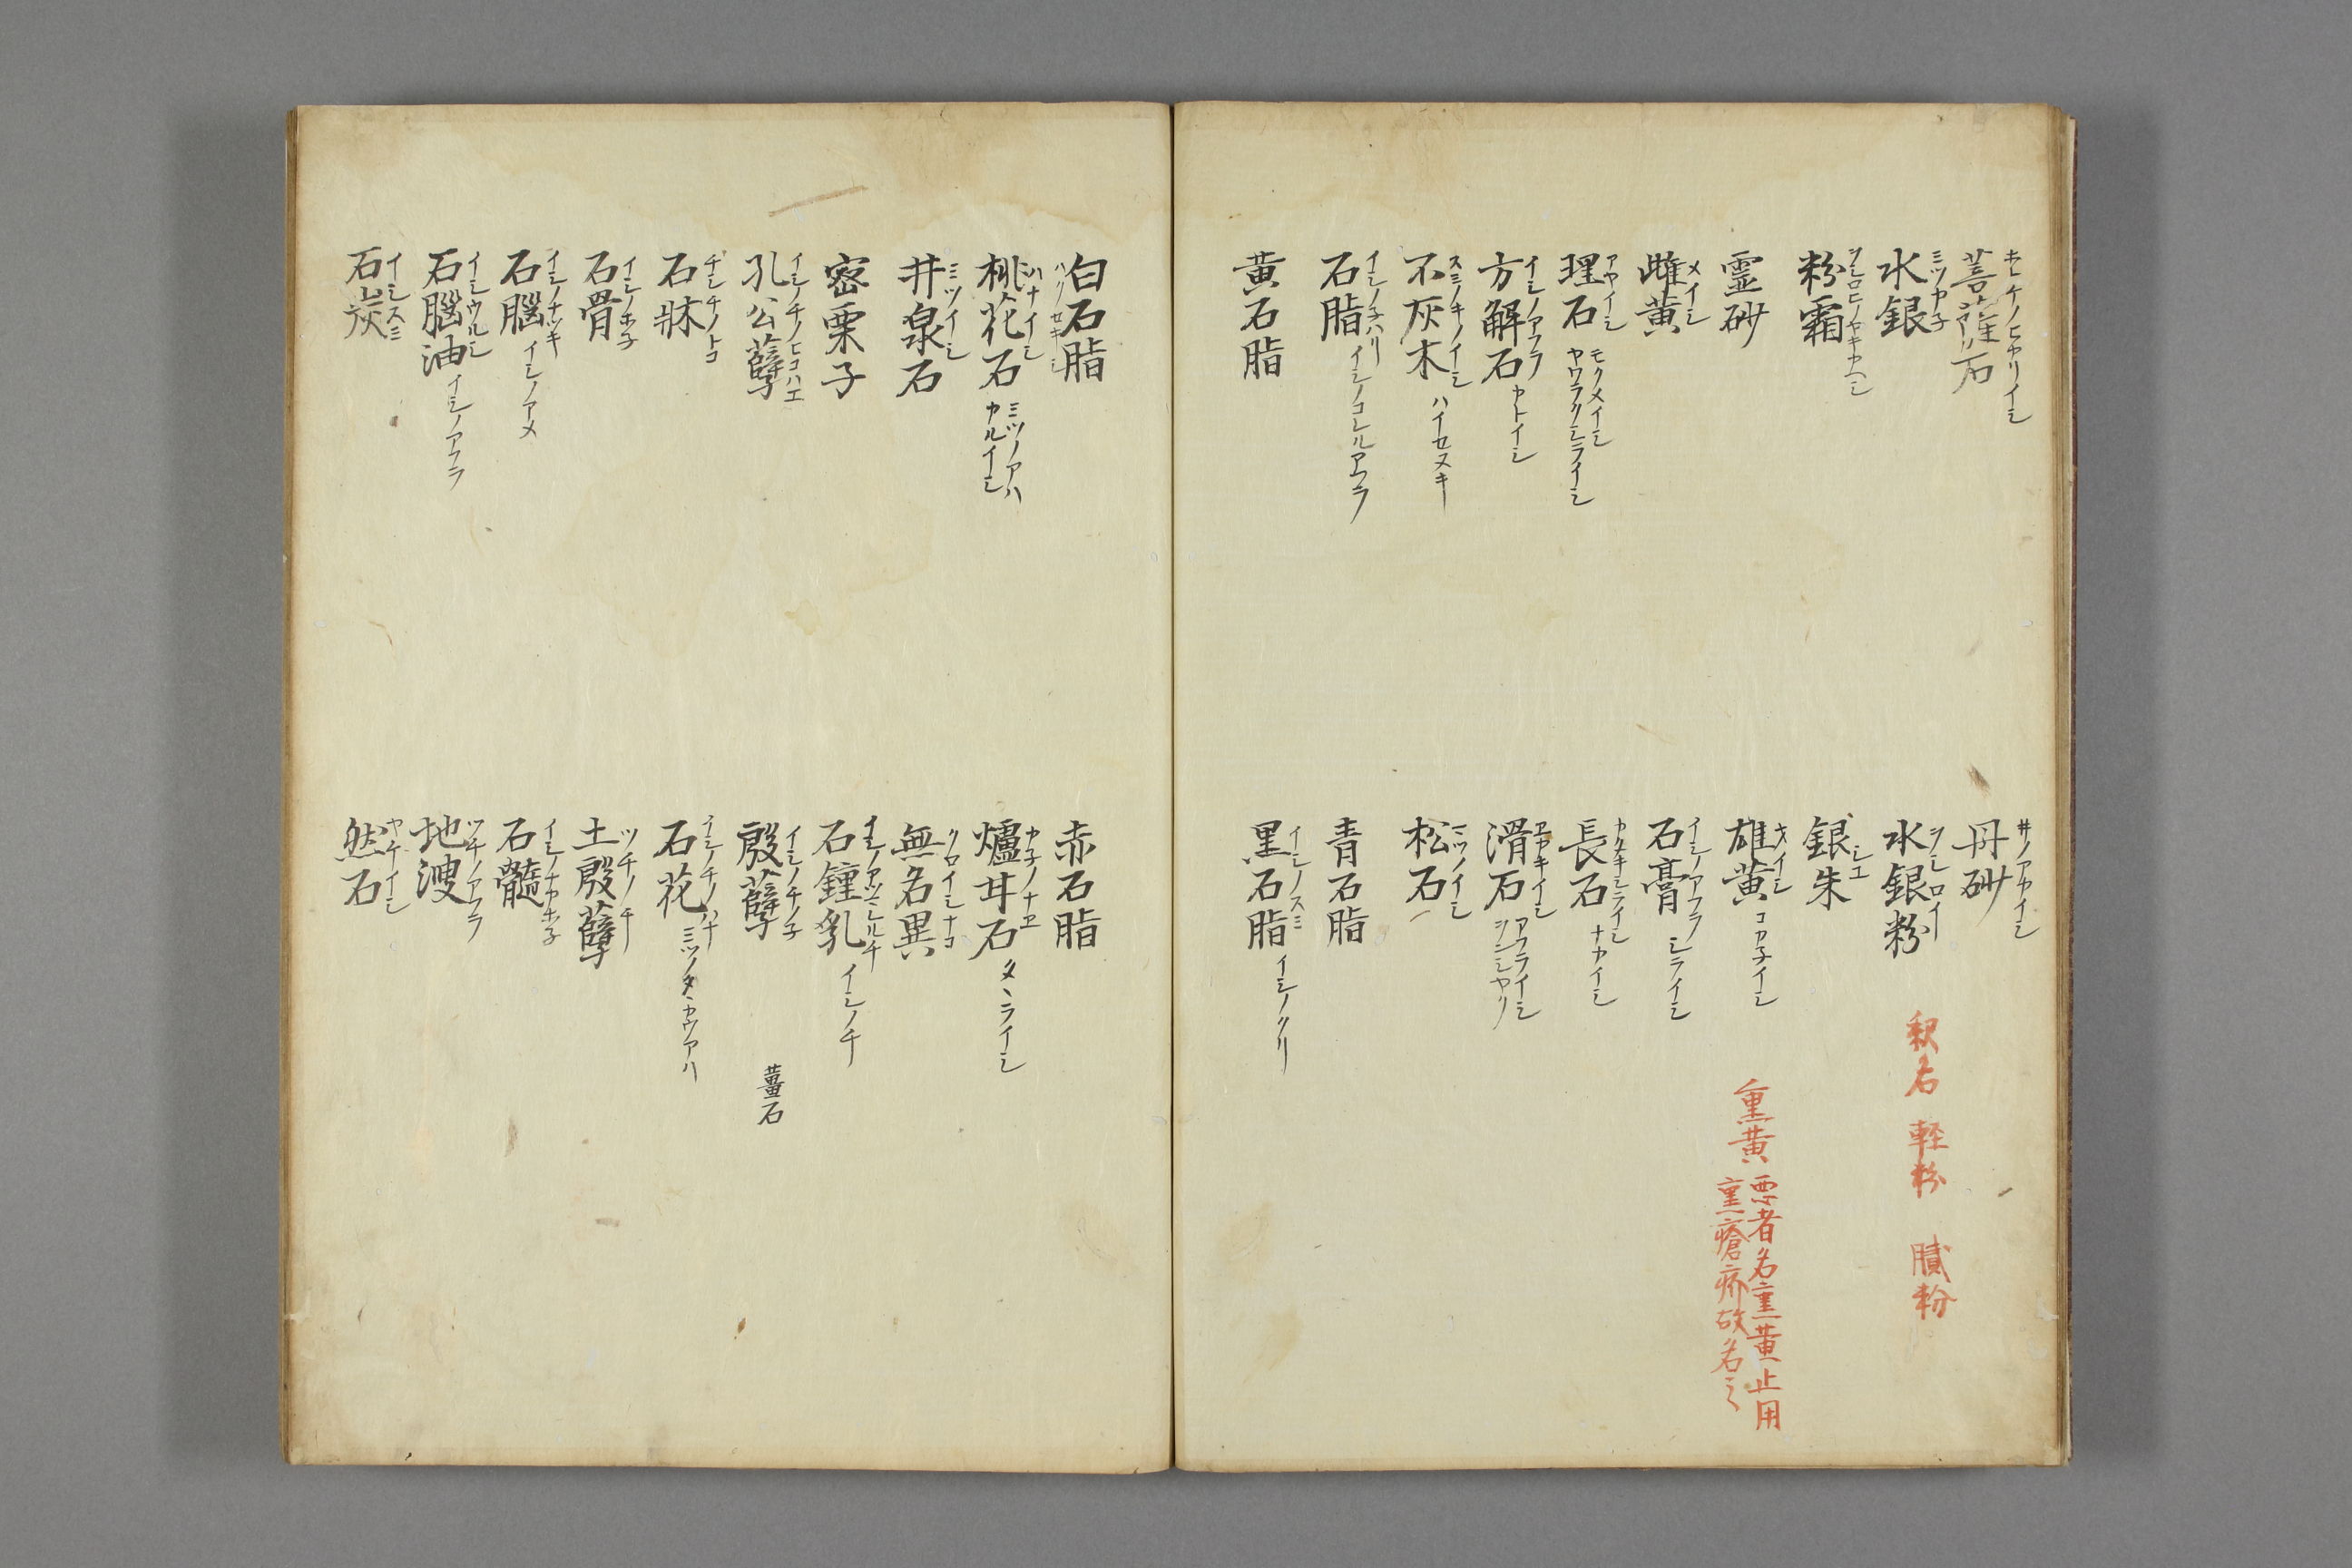 菩薩石
丹砂 井ノアカイシ
水銀 ミツカ子
水銀粉 ヲシロイ
釈名 軽粉 膩粉
粉霜
銀朱 シユ
霊砂
雄黄 ヲイシ コカ子イシ
熏黄
悪者名熏黄止用
熏瘡疥故名之
雌黄 メイシ
石膏 イシノアフラ シライシ
理石 アヤイシ モクメイシ ヤワラクシライシ
長石 ナカイシ
方解石 イシノアフラ カトイシ
滑石 アフライシ
不灰木 スミノキノイシ ハイセヌキ
松石 ミツノイシ
石脂 イシノ子ハリ イシノコレルアフラ
青石脂
黄石脂
黒石脂 イシノスミ イシノクリ
白石脂
赤石脂
桃花石 ハナイシ ミツノアハ カルイシ
爐甘石 タヽライシ
井泉石 ミツイシ
無名異 クロイシナコ
密栗子
石鍾乳 イシノチ
孔公孽 イシノチノヒコハエ
殷孽 イシノチノ子
薑石
石牀 チシチノトコ
石花 イシノチノハナ
石骨 イシノホ子
土殷孽 ツチノチ
石腦 イシノナツキ イシノアメ
石髓 イシノナカホ子
石腦油 イシウルシ イシノアフラ
地溲 ツチノアフラ
石炭 イシスミ
然石 ヤケイシ